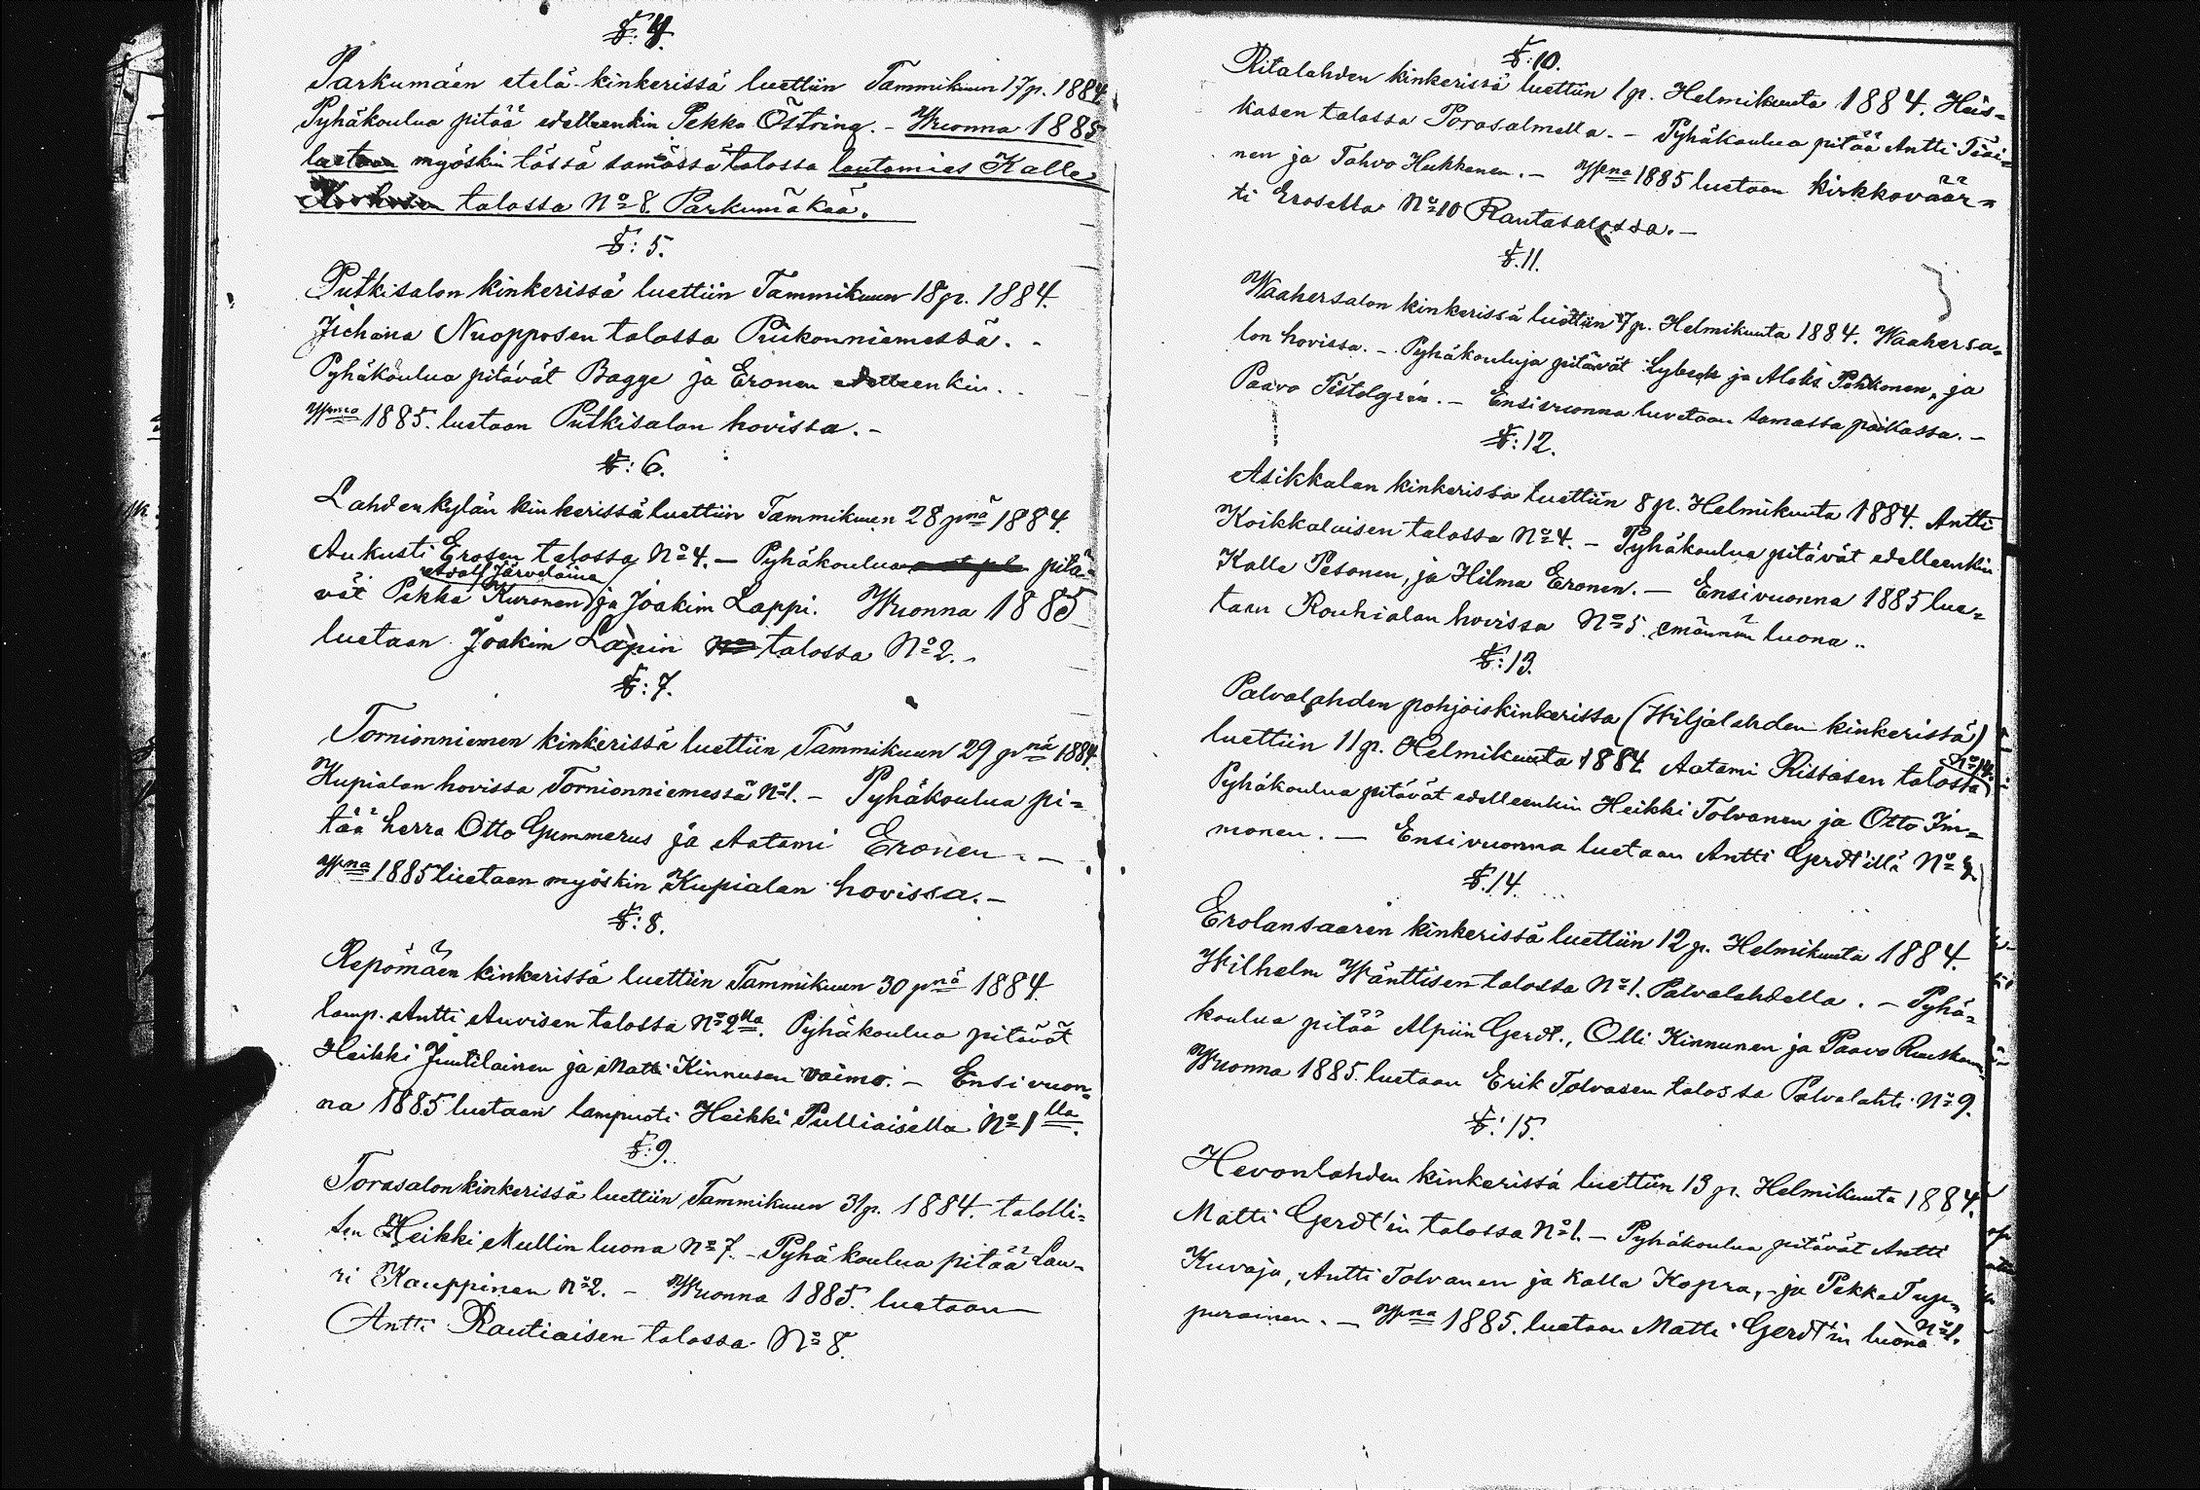 §: 4.
Parkumäen etelä kinkerissä luettiin Tammikuun 17 p. 1884.
Pyhäkoulua pitää edelleenkin Pekka Östring. - Wuonna 1885
luetaan myöskin tässä samassa talossa lautamies Kalle
talossa No 8. Parkumäkeä.
§: 5.
Putkisalon kinkerissä luettiin Tammikuun 18 p. 1884.
Juhana Nuopposen talossa Piikonniemessä. -
Pyhäkoulua pitävät Bagge ja Eronen edelleenkin.
Wna 1885. luetaan Putkisalon hovissa. -
§: 6.
Lahdenkylän kinkerissä luettiin Tammikuun 28 pnä 1884.
Aukusti Erosen talossa No 4. - Pyhäkoulua pitä-
Adolf Järveläine
vät Pekka Kuronen ja Joakim Lappi. Wuonna 1885
luetaan Joakim Lapin talossa No 2. -
§: 7.
Tornionniemen kinkerissä luettiin Tammikuun 29 pnä 1884.
Kupialan hovissa Tornionniemessä No 1. - Pyhäkoulua pi=
tää herra Otto Gummerus ja Aatami Eronen. -
Wna 1885 luetaan myöskin Kupialan hovissa. -
§: 8.
Repomäen kinkerissä luettiin Tammikuun 30 pnä 1884.
lamp. Antti Auvisen talossa No 2lla. Pyhäkoulua pitävät
Heikki Juutilainen ja Matti Kinnusen vaimo. - Ensi vuon=
na 1885 luetaan lampuoti Heikki Pulliaisella No 1lla.
§: 9.
Torasalon kinkerissä luettiin Tammikuun 31 p. 1884. talolli=
sen Heikki Mullin luona No 7. - Pyhäkoulua pitää Lau-
ri Kauppinen No 2. - Wuonna 1885. luetaan
Antti Rautiaisen talossa No 8.
§: 10.
Ritalahden kinkerissä luettiin 1 p. Helmikuuta 1884. Heis=
kasen talossa Porosalmella. - Pyhäkoulua pitää Antti
nen ja Tahvo Hukkanen. - Wna 1885 luetaan kirkkoväär=
ti Erosella No 10 Rautasalossa. -
§. 11.
Waahersalon kinkerissä luettiin 7 p. Helmikuuta 1884. Waahersa=
lon hovissa. - Pyhäkouluja pitävät Lybeck ja Aleks Pöhkonen, ja
Paavo Tistelgrén. - Ensivuonna luvetaan samassa paikassa. -
§: 12.
Asikkalan kinkerissä luettiin 8 p. Helmikuuta 1884. Antti
Koikkalaisen talossa No 4. - Pyhäkoulua pitävät edelleenkin
Kalle Pesonen, ja Hilma Eronen. - Ensivuonna 1885 lue=
taan Rouhialan hovissa No 5. emännän luona..
§: 13.
Palvalahden pohjoiskinkerissä (Wiljalahden kinkerissä)
No 14.
luettiin 11 p. Helmikuuta 1884 Aatami Rissasen talossa
Pyhäkoulua pitävät edelleenkin Heikki Tolvanen ja Otto Im=
monen. - Ensi vuonna luetaan Antti Gerdt'illä No
§. 14.
Erolansaaren kinkerissä luettiin 12 p. Helmikuuta 1884.
Wilhelm Wänttisen talossa No 1. Palvalahdella. - Pyhä=
koulua pitää Alpiin Gerdt., Olli Kinnunen ja Paavo
Wuonna 1885. luetaan Erik Tolvasen talossa Palvalahti No 9.
§: 15.
Hevonlahden kinkerissä luettiin 13 p. Helmikuuta 1884.
Matti Gerdt'in talossa No 1. - Pyhäkoulua pitävät Antti
Kuvaja, Antti Tolvanen ja Kalle Kopra, - ja Pekka Tup=
purainen. - Wna 1885. luetaan Matti Gerdt'in luona No 1.